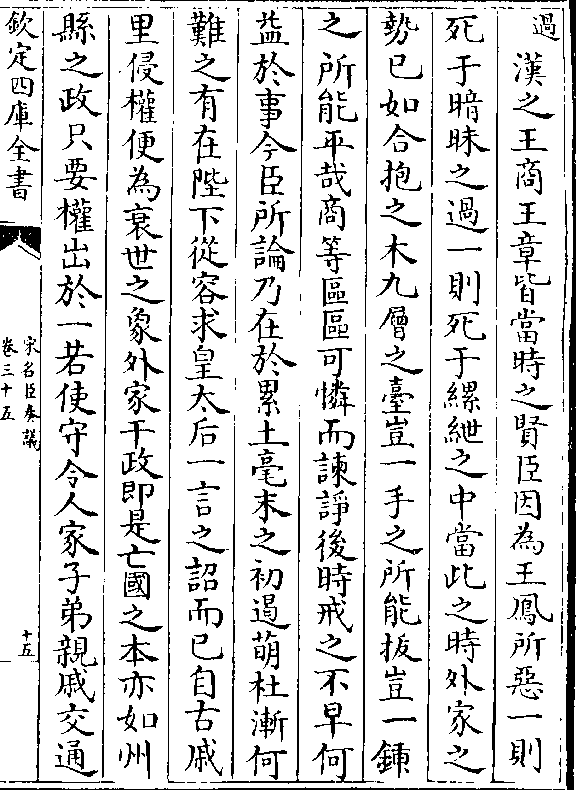 過
漢之王商王章皆當時之賢臣因為王鳳所惡一則
死于暗昧之過一則死于縲絏之中當此之時外家之
勢已如合抱之木九層之臺豈一手之所能拔豈一鍤
之所能平哉商等區區可憐而諫諍後時戒之不早何
益於事今臣所論乃在於累土毫末之初遏萌杜漸何
難之有在陛下從容求皇太后一言之詔而已自古戚
里侵權便為衰世之象外家干政即是亡國之本亦如州
縣之政只要權出於一若使守令人家子弟親戚交通
欽定四庫全書
宋名臣奏議
卷三十五
十五